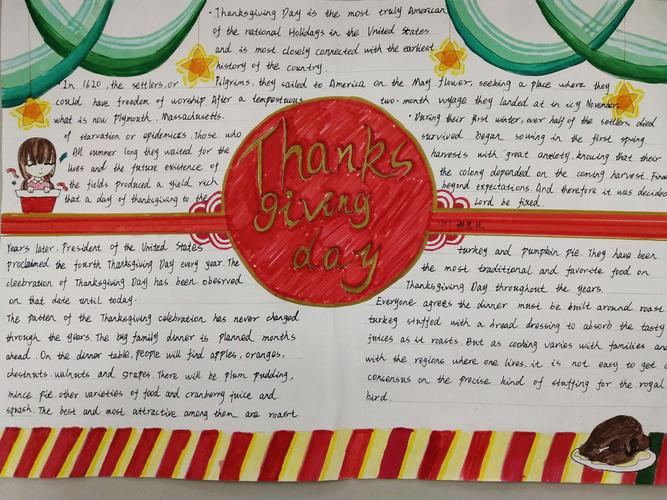 · Thanksgiving Day is the most truly American
of the national Holidays in the United States
and is most closely connected with the earliest
history of the country.
· In 1620, the settlers, or Pilgrims, they sailed to America on the May flower, seeking a place where they
could have freedom of worship. After a tempestuous two-month voyage they landed at in icy November,
what is now Plymouth, Massachusetts.
· During their first winter, over half of the settlers died
of starvation or epidemics. Those who survived began sowing in the first spring.
All summer long they waited for the harvests with great anxiety, knowing that their
lives and the future existence of the colony depended on the coming harvest.
the fields produced a yield rich beyond expectations. And therefore it was decided
that a day of thanksgiving to the Lord be fixed.
Thanks
giving
day
Years later, President of the United States
proclaimed the fourth Thanksgiving Day every year. The
cleebration of Thanksgiving Day has been obeserved
on that date until today.
The patten of the Thanksgiving celebration has never changed
through the years. The big family dinner is planned months
ahead. On the dinner table, people will find apples, oranges,
chestnuts, walnuts and grapes. There will be plum pudding,
mince pie, other varieties of food and cranberry juice and
squash. The best and most attractive among them are roast
turkey and pumpkin pie. They have been
the most traditional and favorite food on
Thanksgiving Day throughout the years.
Everyone agrees the dinner must be built around roast
turkey stuffed with a bread dressing to absorb the tasty
juices as it roasts. But as cooking varies with families and
with the regions where one lives, it is not easy to get a
consensus on the precise kind of stuffing for the royal
bird.